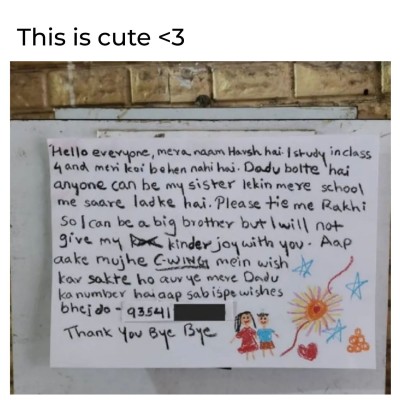 This is cute <3
Hello everyone, mera naam Harsh hai. I study in class
4 and meri koi behen nahi hai. Dadu bolte hai
anyone can be my sister lekin mere school
me saare ladke hai. Please tie me Rakhi
so I can be a big brother but I will not
give my kinder joy with you. Aap
aake mujhe C-WING mein wish
kar sakte ho aur ye mere Dadu
ka number hai aap sab ispe wishes
bhejdo - 93541
Thank You Bye Bye